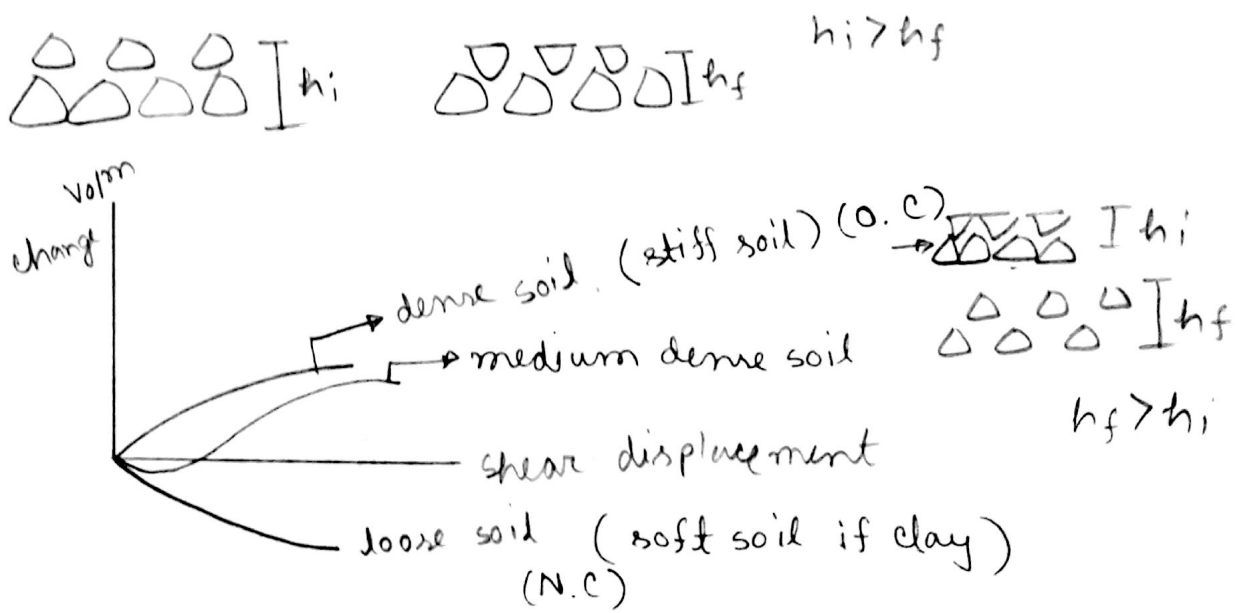 hi
hf
hi>hf
volm
change
dense soil. (stiff soil) (O.C)
hi
medium dense soil
hf
hf>hi
shear displacement
loose soil (soft soil if clay)
(N.C)